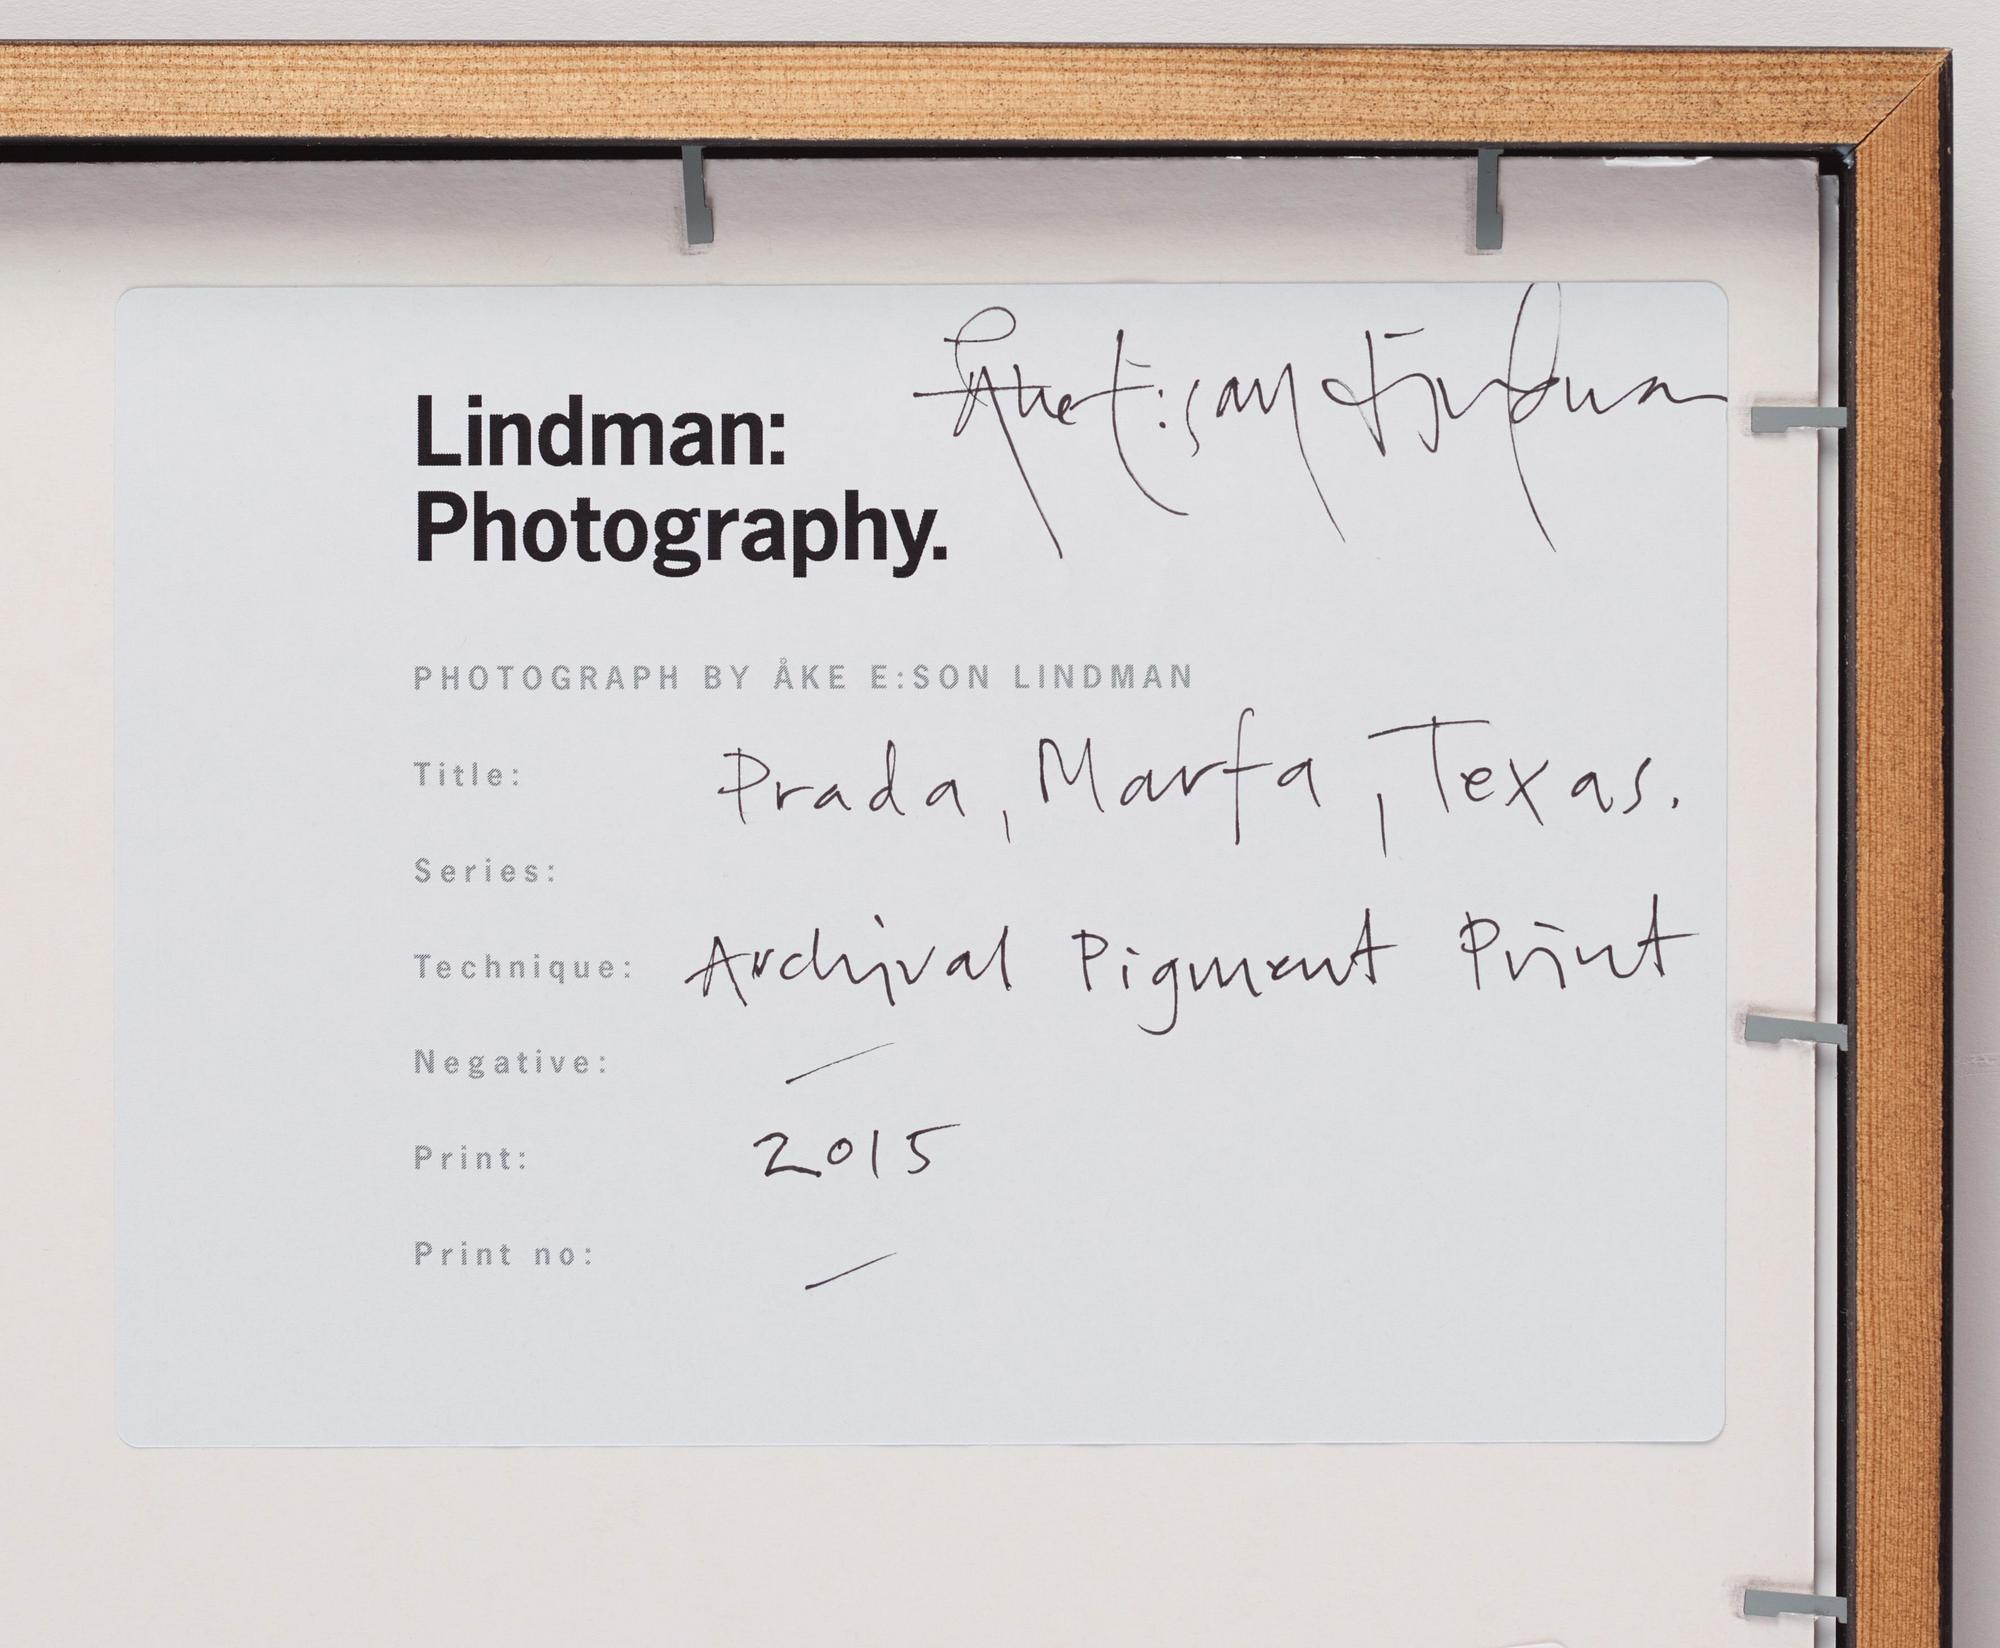 Lindman:
Åke E:son Lindman
Photography.
PHOTOGRAPH BY ÅKE E:SON LINDMAN
Title: Prada, Marfa, Texas.
Series:
Technique: Archival Pigment Print
Negative: —
Print: 2015
Print no: —